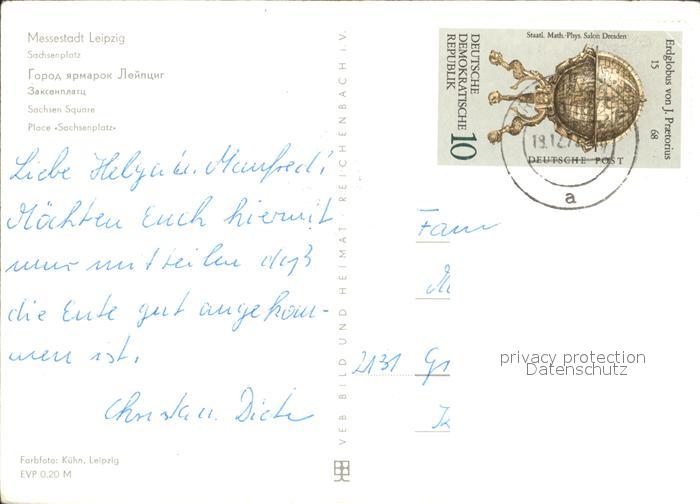 Messestadt Leipzig
Sachsenplatz
Город ярмарок Лейпциг
Заксенплатц
Sachsen Square
Place «Sachsenplatz»
Liebe Helga u. Manfred!
Möchten Euch hiermit
nur mitteilen daß
die Ente gut angekom-
men ist.
Christa u. Dieter
Farbfoto: Kühn, Leipzig
EVP 0,20 M
VEB BILD UND HEIMAT · REICHENBACH i. V.
Staatl. Math.-Phys. Salon Dresden
DEUTSCHE
DEMOKRATISCHE
REPUBLIK
10
Erdglobus von J. Prætorius
15 68
DEUTSCHE POST
19.12.7
a
Fam
M
2131 Gr
privacy protection
Datenschutz